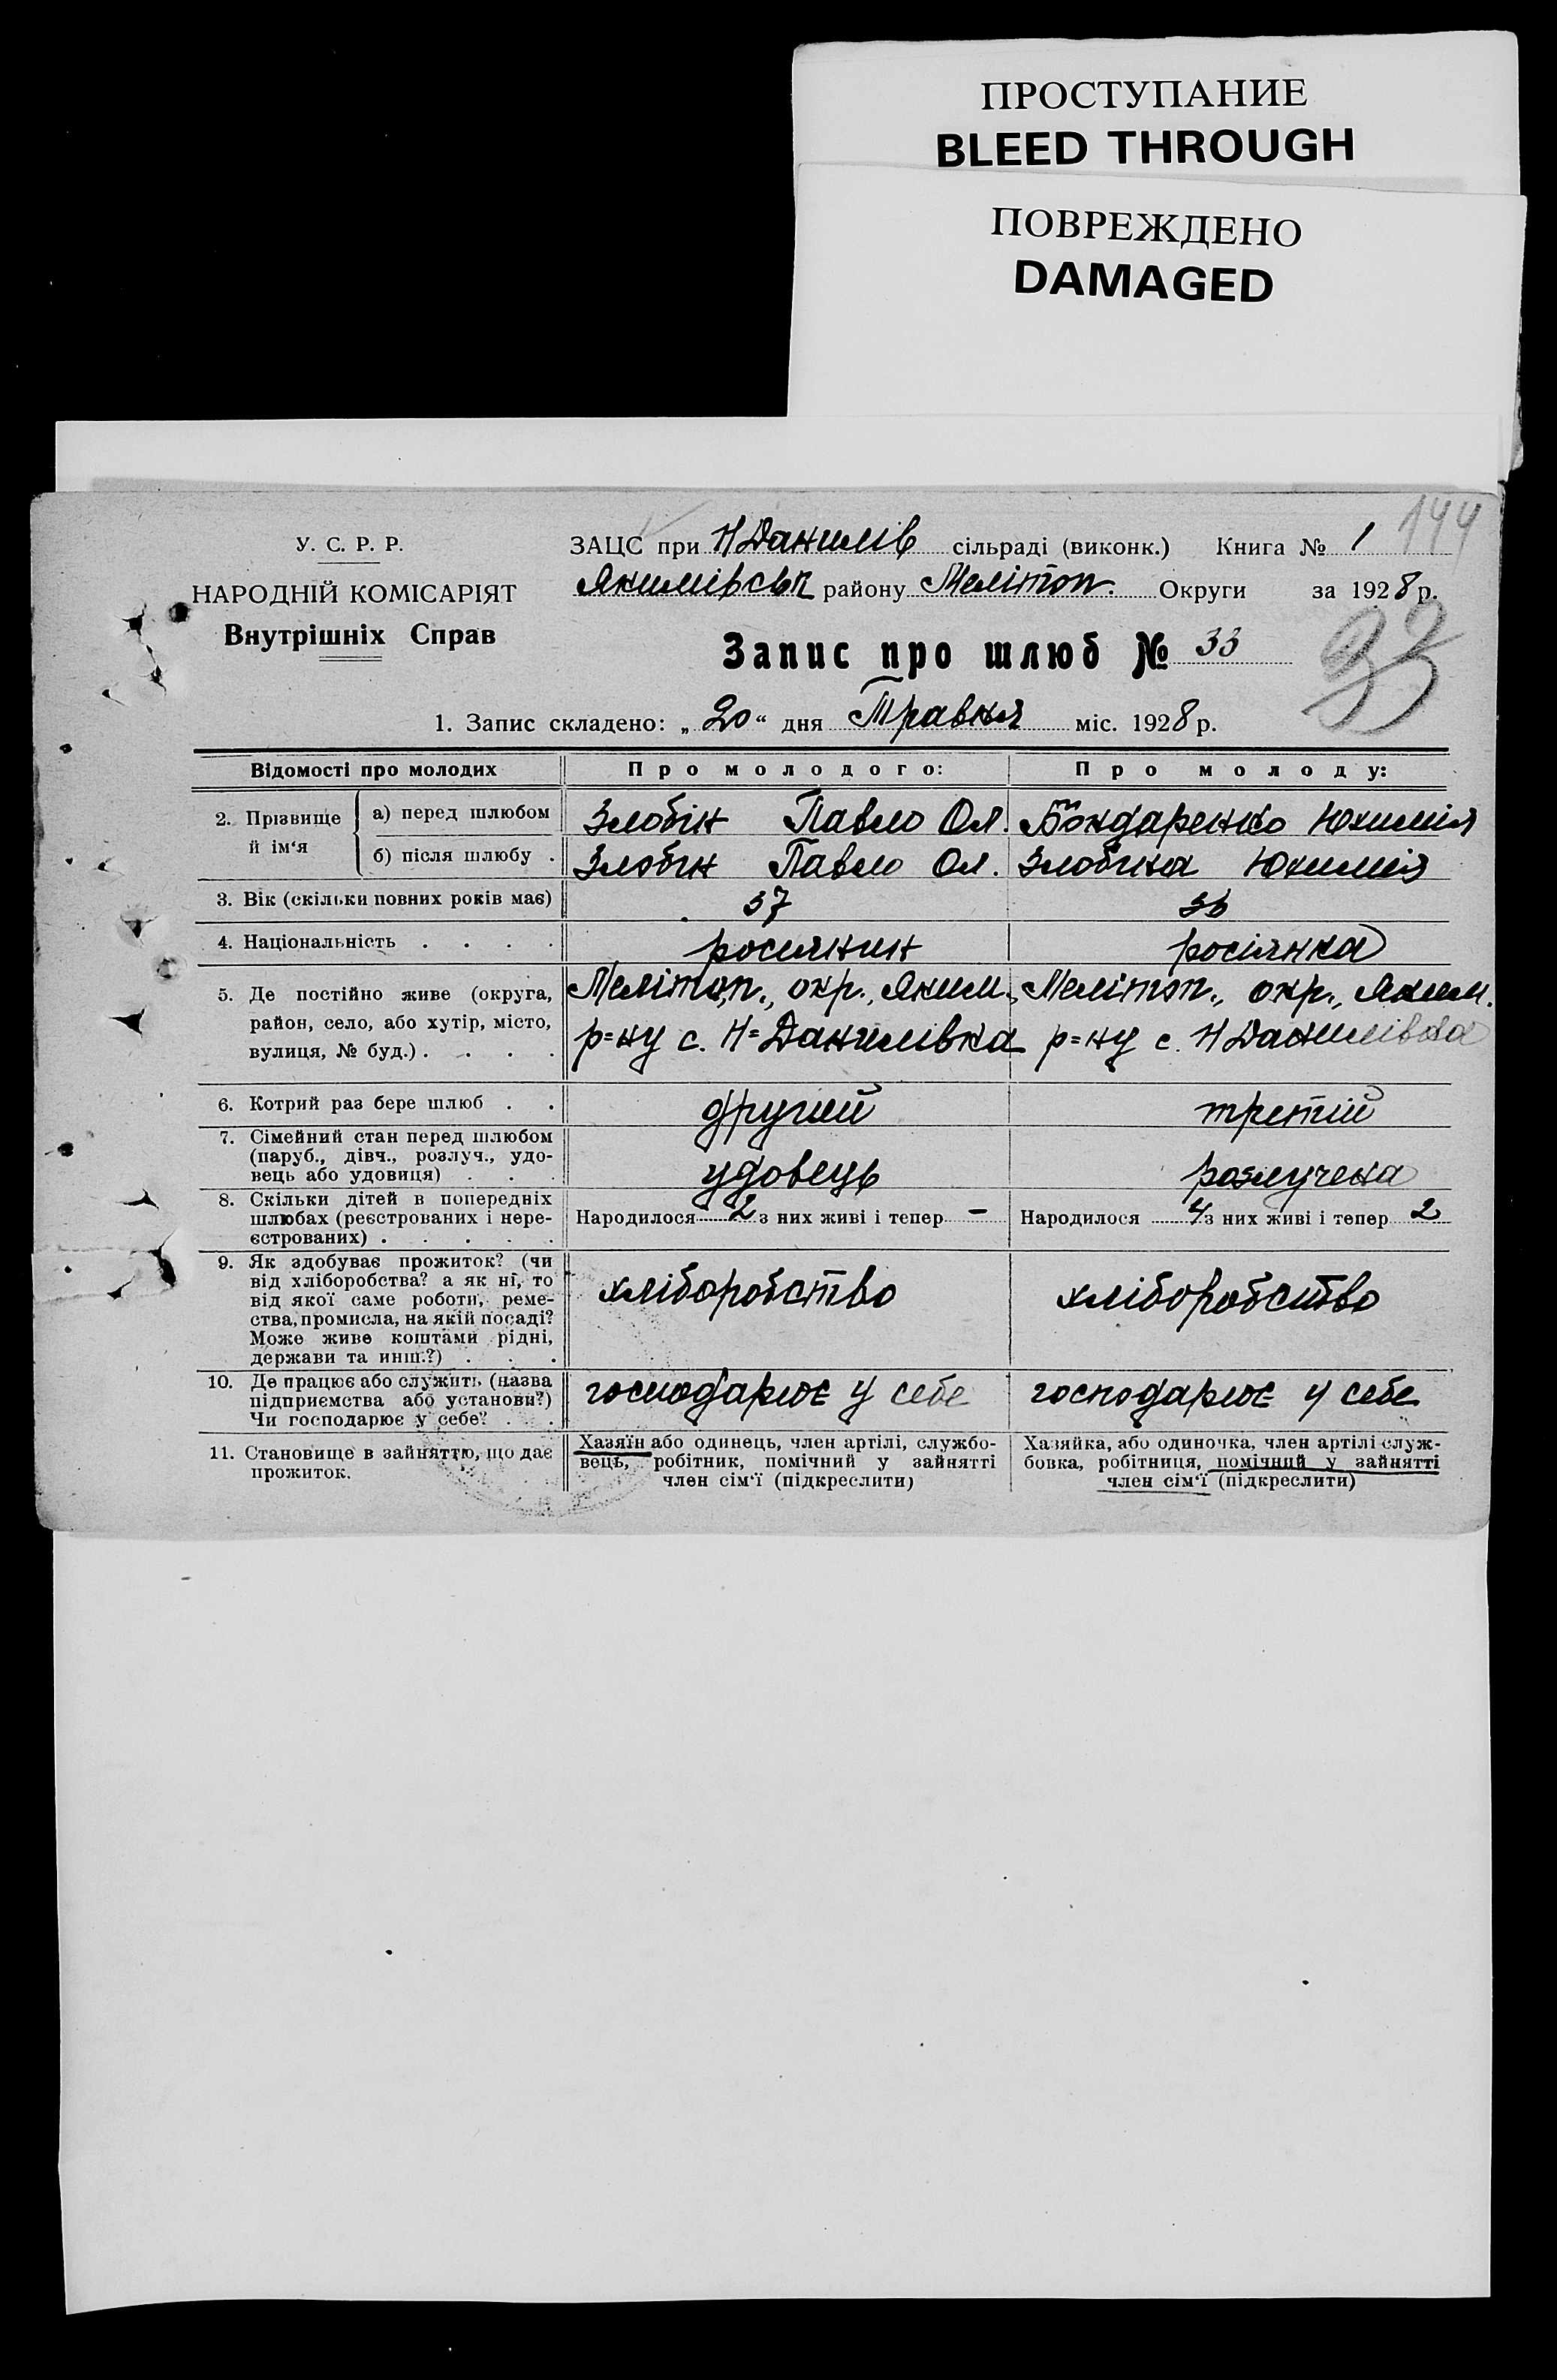 ПРОСТУПАНИЕ
BLEED THROUGH
ПОВРЕЖДЕНО
DAMAGED
144
У. С. Р. Р.
НАРОДНІЙ КОМІСАРІЯТ
Внутрішніх Справ
ЗАЦС при Н Данилів сільраді (виконк.) Книга № 1
Якимівськ району Мелітоп. Округи за 1928 р.
Запис про шлюб № 33
33
1. Запис складено: „ 20 “ дня Травня міс. 1928 р.
Відомості про молодих Про молодого: Про молоду:
2. Прізвище й ім‘я
а) перед шлюбом Злобін Павло Ол. Бондаренко Юхимія
б) після шлюбу . Злобін Павло Ол. Злобіна Юхимія
3. Вік (скільки повних років має) 37 36
4. Національність . . . . росиянин росіянка
5. Де постійно живе (округа, Мелітоп., окр., Яким., Мелітоп., окр., Яким.
район, село, або хутір, місто, р=ну с. Н=Данилівка р=ну с. Н Данилівка
вулиця, № буд.) . . . .
6. Котрий раз бере шлюб . . другий третій
7. Сімейний стан перед шлюбом
(паруб., дівч., розлуч., удо-
вець або удовиця) . . . удовець розлучена
8. Скільки дітей в попередніх
шлюбах (реєстрованих і нере- Народилося 2 з них живі і тепер - Народилося 4 з них живі і тепер 2
єстрованих) . . . . .
9. Як здобуває прожиток? (чи
від хліборобства? а як ні, то хліборобство хліборобство
від якої саме роботи, реме-
ства, промисла, на якій посаді?
Може живе коштами рідні,
держави та инш.?) . . .
10. Де працює або служить (назва
підприємства або установи?) господарює у себе господарює у себе
Чи господарює у себе? . .
11. Становище в зайняттю, що дає Хазяїн або одинець, член артілі, службо- Хазяйка, або одиночка, член артілі служ-
прожиток. вець, робітник, помічний у зайнятті бовка, робітниця, помічний у зайнятті
член сім‘ї (підкреслити) член сім‘ї (підкреслити)